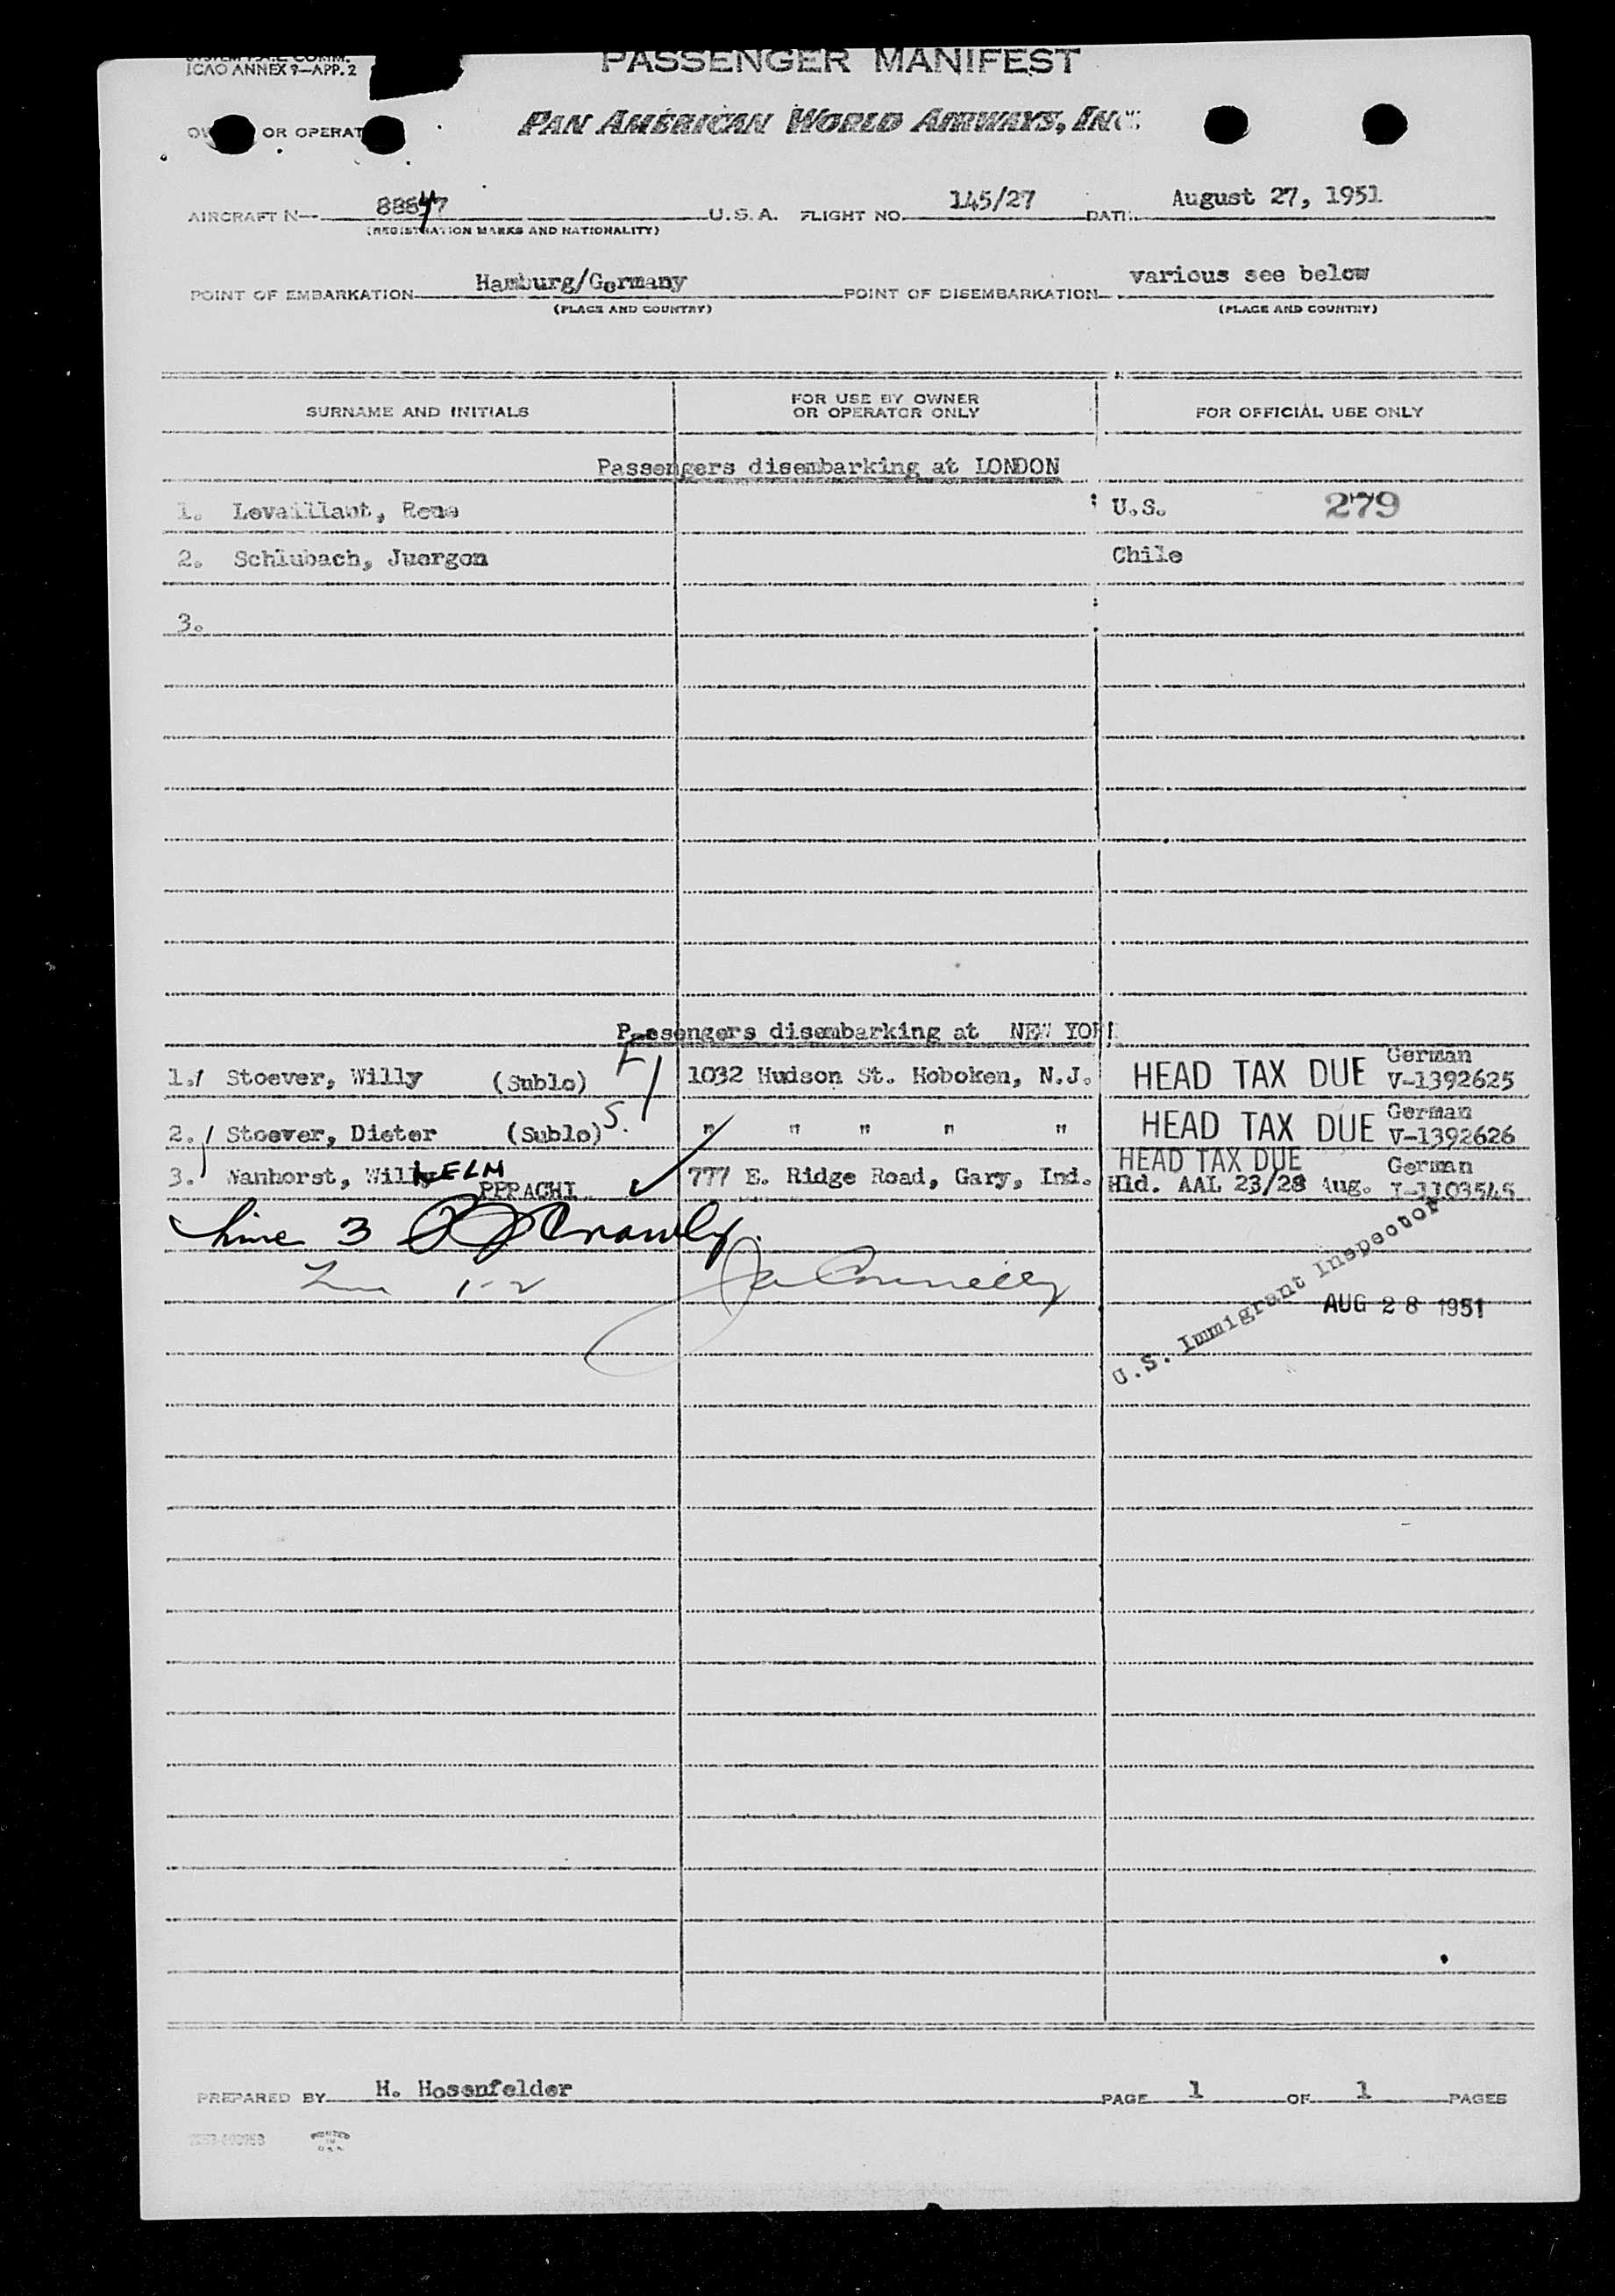 ICAO ANNEX 9—APP. 2
PASSENGER MANIFEST
OR OPERAT
PAN AMERICAN WORLD AIRWAYS, INC.
AIRCRAFT N— 88847 U.S.A. FLIGHT NO. 145/27 DATE August 27, 1951
(REGISTRATION MARKS AND NATIONALITY)
POINT OF EMBARKATION Hamburg/Germany POINT OF DISEMBARKATION various see below
(PLACE AND COUNTRY) (PLACE AND COUNTRY)
SURNAME AND INITIALS FOR USE BY OWNER OR OPERATOR ONLY FOR OFFICIAL USE ONLY
Passengers disembarking at LONDON
1. Levaillant, Rene U.S. 279
2. Schlubach, Juergen Chile
3.
Passengers disembarking at NEW YORK
1. Stoever, Willy (Sublo) 1032 Hudson St. Hoboken, N.J. HEAD TAX DUE German V-1392625
2. Stoever, Dieter (Sublo) S. " " " " " HEAD TAX DUE German V-1392626
3. Nanhorst, Willy HELM PPPACHI 777 E. Ridge Road, Gary, Ind. HEAD TAX DUE Hld. AAL 23/28 Aug. German I-1103545
Line 3
1-2
U.S. Immigrant Inspector
AUG 28 1951
PREPARED BY H. Hosenfelder PAGE 1 OF 1 PAGES
PRINTED IN U.S.A.